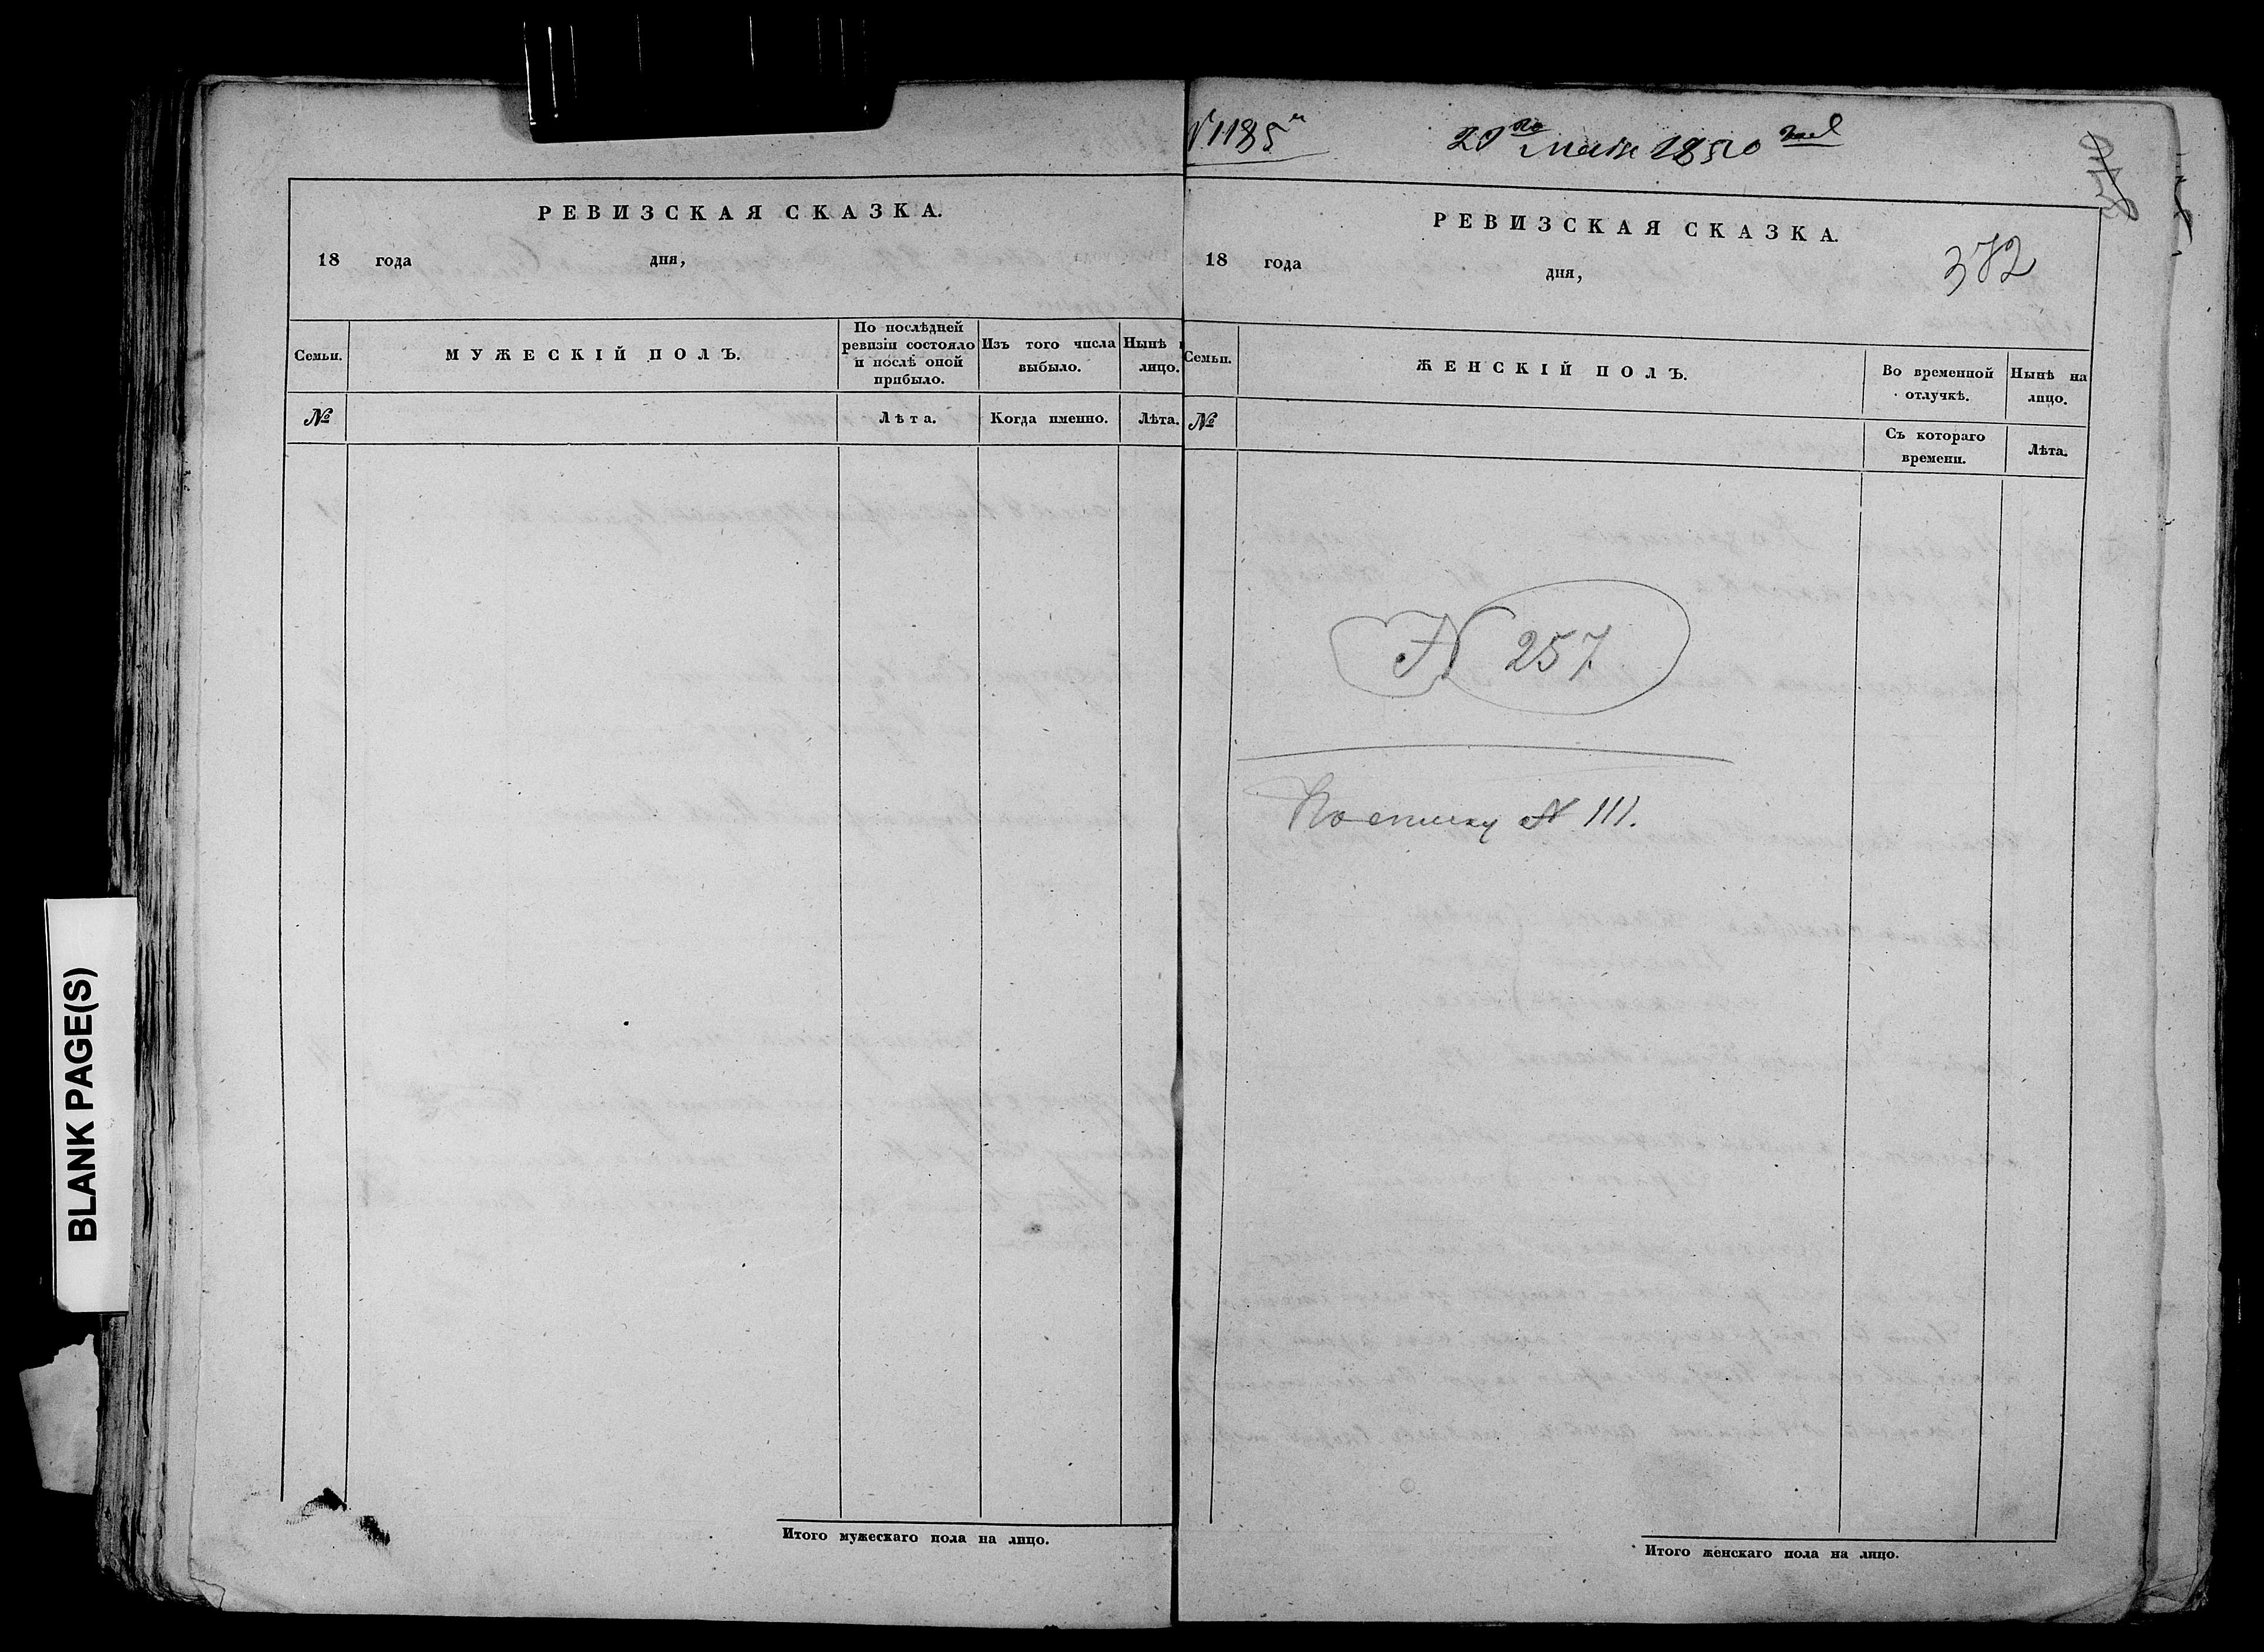 РЕВИЗСКАЯ СКАЗКА.
18 года дня,
Семьи.
МУЖЕСКІЙ ПОЛЪ.
По послѣдней ревизіи состояло и послѣ оной прибыло.
Изъ того числа выбыло.
Нынѣ
лицо.
№
Лѣта.
Когда именно.
Лѣта.
Итого мужескаго пола на лицо.
BLANK PAGE(S)
№1185
20го Мая 1850
РЕВИЗСКАЯ СКАЗКА.
18 года дня,
372
Семьи.
ЖЕНСКІЙ ПОЛЪ.
Во временной отлучкѣ.
Нынѣ на лицо.
№
Съ котораго времени.
Лѣта.
N 257
По списку N 111.
Итого женскаго пола на лицо.